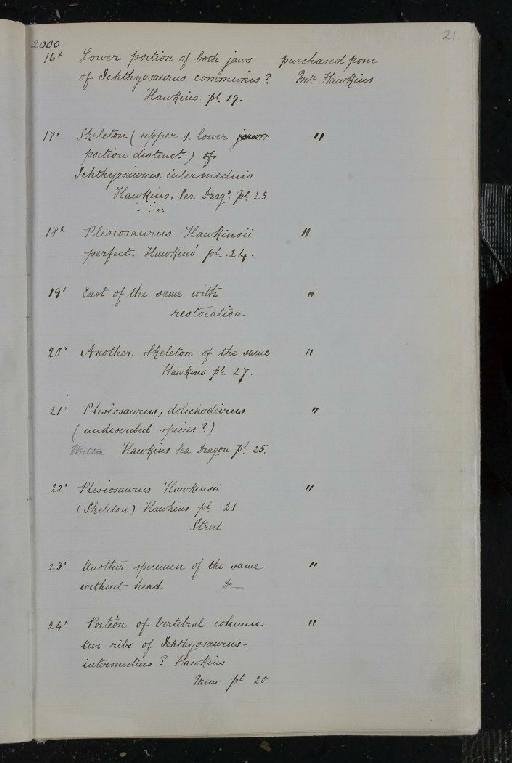 21
2000
16* Lower portion of both jaws purchased from
of Ichthyosaurus communis? Mr. Hawkins
Hawkins. pl. 19.
17* Skeleton (upper & lower
portion distinct) of "
Ichthyosaurus intermedius
Hawkins, Sea Drag. pl. 23
18* Plesiosaurus Hawkinsii "
perfect. Hawkins pl. 24.
19* Cast of the same with "
restoration.
20* Another Skeleton of the same "
Hawkins pl. 27.
21* Plesiosaurus, dolichodirus "
(undescribed species?)
Hawkins Sea Dragon pl. 25.
22* Plesiosaurus Hawkinsii "
(Skeleton) Hawkins pl. 21
Street
23* Another specimen of the same "
without head
24* Portion of Vertebral column "
ribs of Ichthyosaurus
intermedius? Hawkins
pl. 20